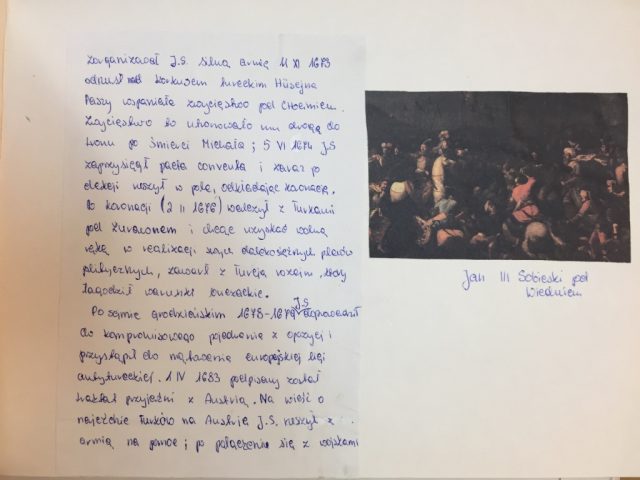 zorganizował J.S. silną armię 11 XI 1673
odniósł nad korpusem tureckim Hüsejna
Paszy wspaniałe zwycięstwo pod Chocimiem.
Zwycięstwo to utorowało mu drogę do
tronu po śmierci Michała; 5 VI 1674 J.S
zaprzysiągł pacta conventa i zaraz po
elekcji ruszył w pole, odkładając koronację.
Po koronacji (2 II 1676) walczył z Turkami
pod Żurawnem i chcąc uzyskać wolną
rękę w realizacji swych dalekosiężnych planów
politycznych, zawarł z Turcją rozejm, który
łagodził warunki buczackie.
Po sejmie grodzieńskim 1678-1679 J.S. doprowadził
do kompromisowego pojednania z opozycji i
przystąpił do montowania europejskiej ligi
antytureckiej. 1 IV 1683 podpisany został
traktat przyjaźni z Austrią. Na wieść o
najeździe Turków na Austrię J.S. ruszył z
armią na pomoc; po połączeniu się z wojskami
Jan III Sobieski pod
Wiedniem